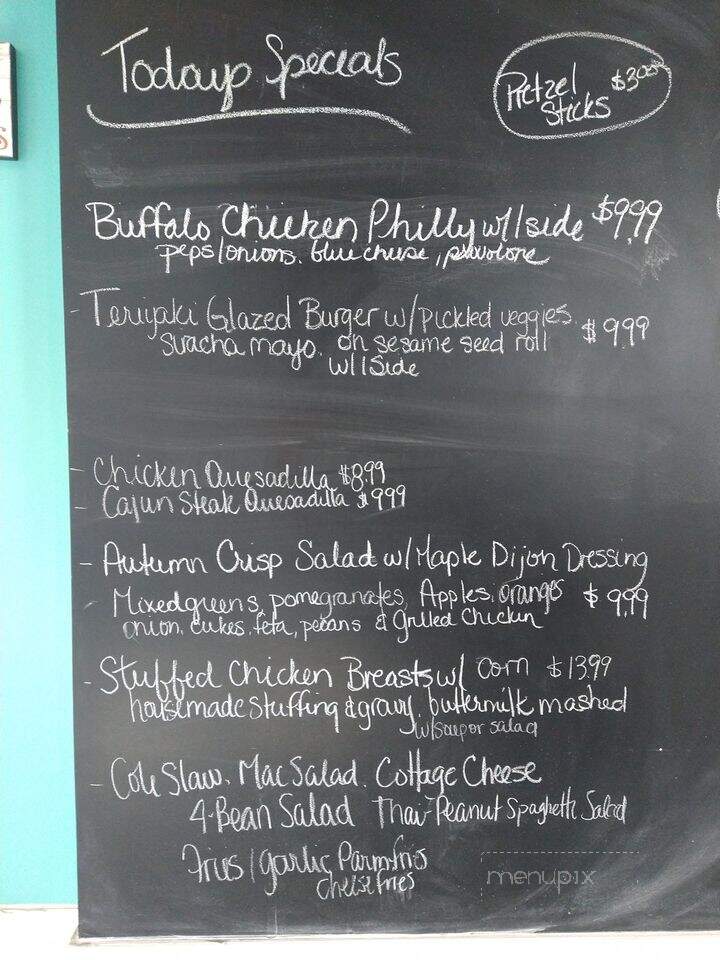 Today Specials
Pretzel $3.00
Sticks
Buffalo Chicken Philly w/1side $9.99
peps/onions. blue cheese, provolone
- Teriyaki Glazed Burger w/pickled veggies, $9.99
sriracha mayo. on sesame seed roll
w/1 Side
- Chicken Quesadilla $8.99
- Cajun Steak Quesadilla $9.99
- Autumn Crisp Salad w/Maple Dijon Dressing
- Mixed greens, pomegranates, Apples, oranges $9.99
onion, cukes, feta, pecans & Grilled Chicken
- Stuffed Chicken Breasts w/ corn $13.99
housemade stuffing & gravy, buttermilk mashed
w/soup or salad
- Cole Slaw. Mac Salad. Cottage Cheese
4-Bean Salad Thai-Peanut Spaghetti Salad
Fries/garlic Parm fries
cheese fries
menupix